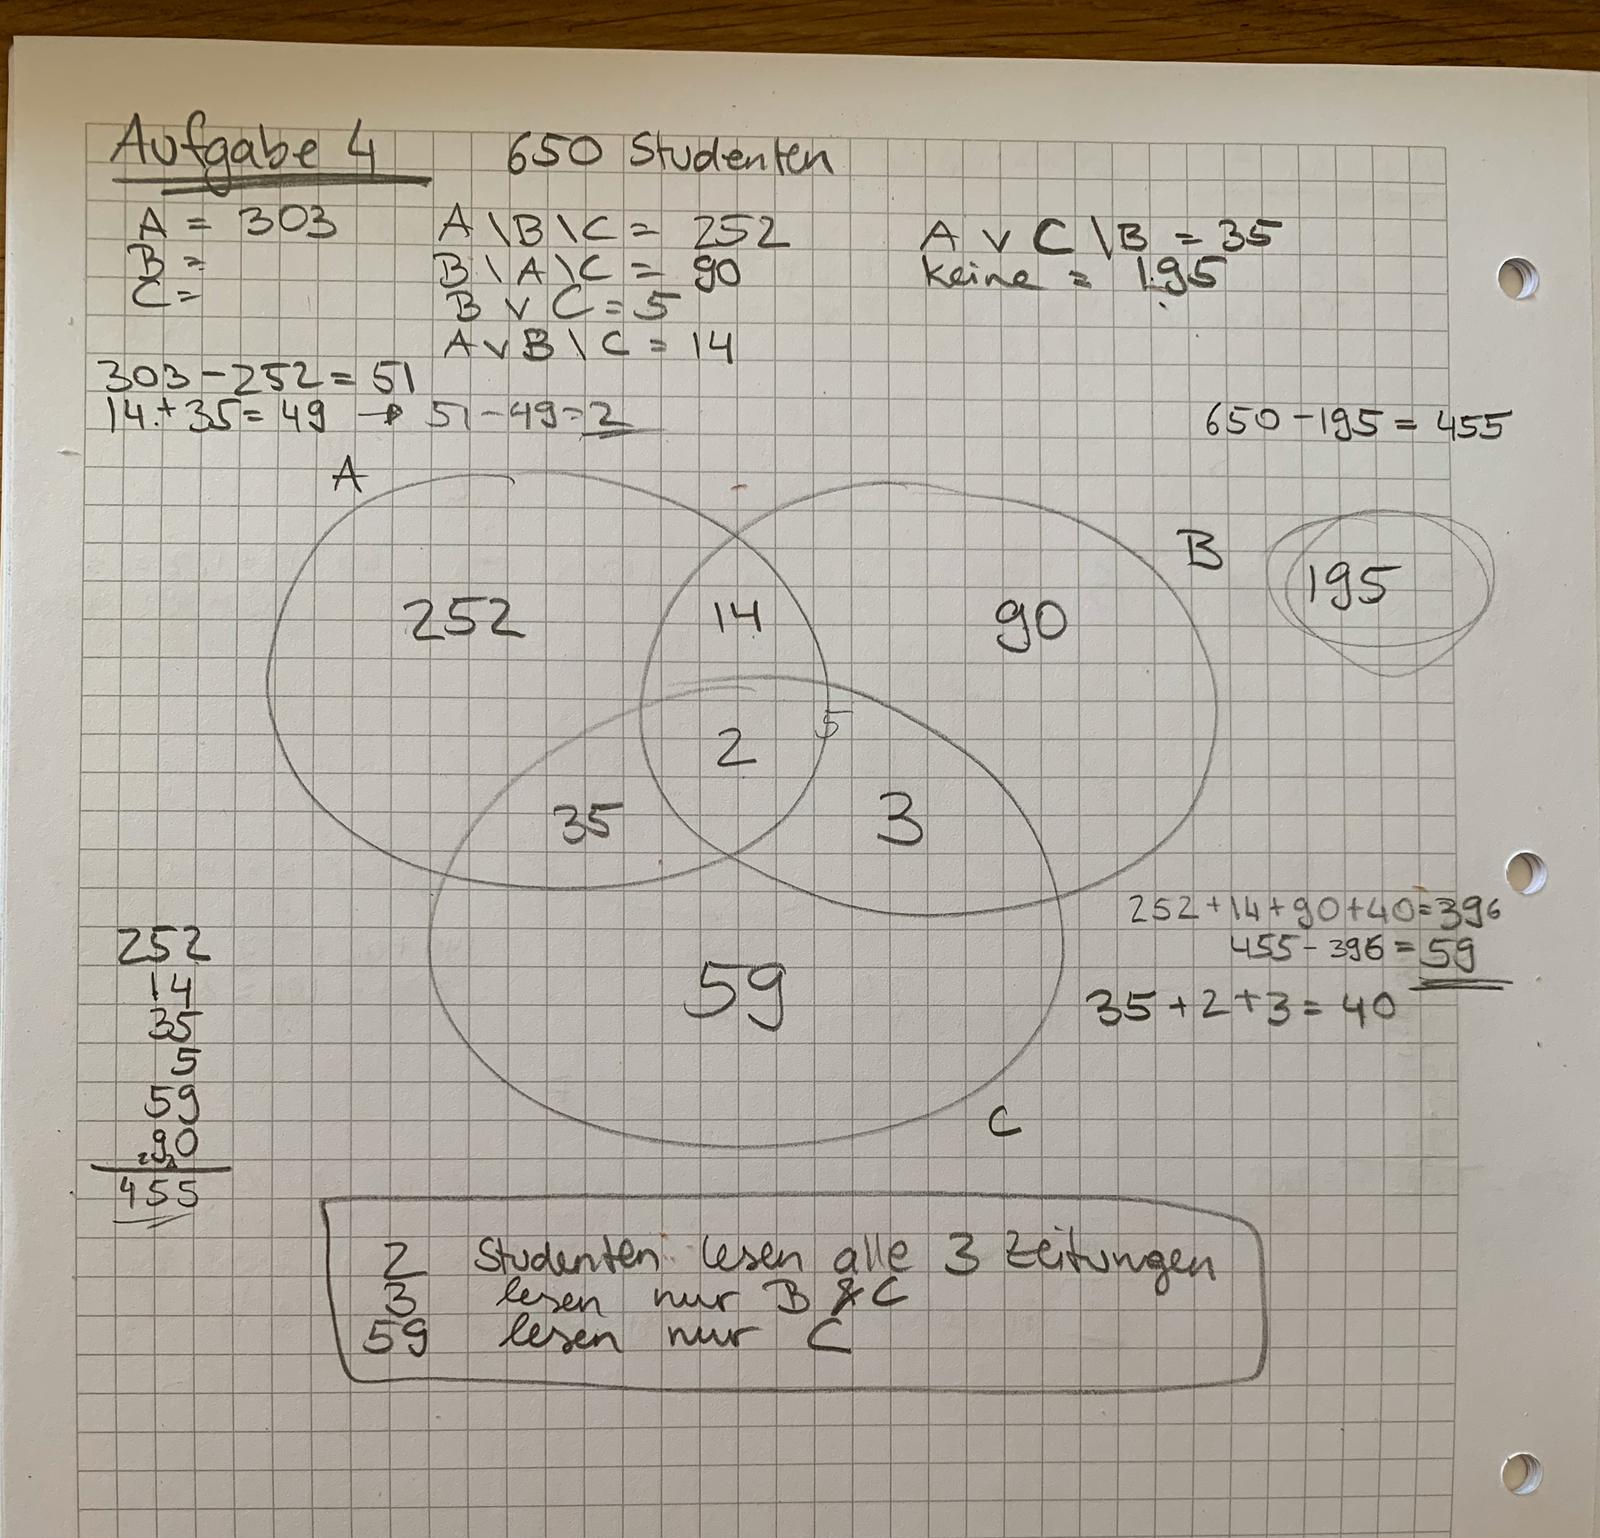 Aufgabe 4 650 Studenten
A = 303
B =
C =
A \ B \ C = 252
B \ A \ C = 90
B v C = 5
A v B \ C = 14
A v C \ B = 35
keine = 195
303 - 252 = 51
14 + 35 = 49 → 51 - 49 = 2
650 - 195 = 455
A
B
195
252
14
90
5
2
35
3
252 + 14 + 90 + 40 = 396
455 - 396 = 59
35 + 2 + 3 = 40
59
C
252
14
35
5
59
90
2 2
455
2 Studenten lesen alle 3 Zeitungen
3 lesen nur B & C
59 lesen nur C